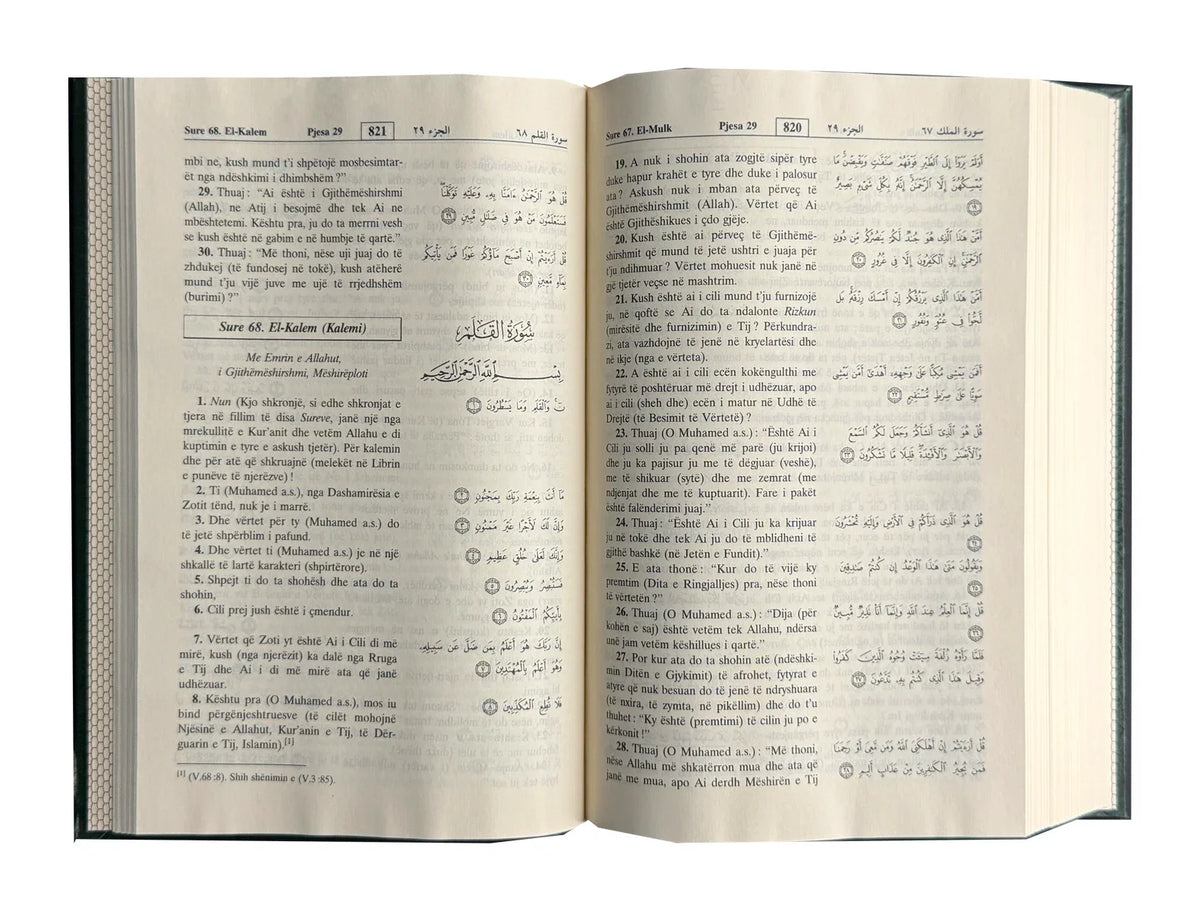 Sure 67. El-Mulk Pjesa 29 820 الجزء ٢٩ سورة الملك ٦٧
19. A nuk i shohin ata zogjtë sipër tyre
duke hapur krahët e tyre dhe duke i palosur
ata ? Askush nuk i mban ata përveç të
Gjithëmëshirshmit (Allah). Vërtet që Ai
është Gjithëshikues i çdo gjëje.
20. Kush është ai përveç të Gjithëmë-
shirshmit që mund të jetë ushtri e juaja për
t'ju ndihmuar ? Vërtet mohuesit nuk janë në
gjë tjetër veçse në mashtrim.
21. Kush është ai i cili mund t'ju furnizojë
ju, në qoftë se Ai do ta ndalonte Rizkun
(mirësitë dhe furnizimin) e Tij ? Përkundra-
zi, ata vazhdojnë të jenë në kryelartësi dhe
në ikje (nga e vërteta).
22. A është ai i cili ecën kokëngulthi me
fytyrë të poshtëruar më drejt i udhëzuar, apo
ai i cili (sheh dhe) ecën i matur në Udhë të
Drejtë (të Besimit të Vërtetë) ?
23. Thuaj (O Muhamed a.s.) : “Është Ai i
Cili ju solli ju pa qenë më parë (ju krijoi)
dhe ju ka pajisur ju me të dëgjuar (veshë),
me të shikuar (sytë) dhe me zemrat (me
ndjenjat dhe me të kuptuarit). Fare i pakët
është falënderimi juaj.”
24. Thuaj : “Është Ai i Cili ju ka krijuar
ju në tokë dhe tek Ai ju do të mblidheni të
gjithë bashkë (në Jetën e Fundit).”
25. E ata thonë : “Kur do të vijë ky
premtim (Dita e Ringjalljes) pra, nëse thoni
të vërtetën ?”
26. Thuaj (O Muhamed a.s.) : “Dija (për
kohën e saj) është vetëm tek Allahu, ndërsa
unë jam vetëm këshillues i qartë.”
27. Por kur ata do ta shohin atë (ndëshki-
min Ditën e Gjykimit) të afrohet, fytyrat e
atyre që nuk besuan do të jenë të ndryshuara
(të nxira, të zymta, në pikëllim) dhe do t'u
thuhet : “Ky është (premtimi) të cilin ju po e
kërkonit !”
28. Thuaj (O Muhamed a.s.) : “Më thoni,
nëse Allahu më shkatërron mua dhe ata që
janë me mua, apo Ai derdh Mëshirën e Tij
أَوَلَمْ يَرَوْا إِلَى ٱلطَّيْرِ فَوْقَهُمْ صَٰٓفَّٰتٍ وَيَقْبِضْنَ مَا
يُمْسِكُهُنَّ إِلَّا ٱلرَّحْمَٰنُ إِنَّهُۥ بِكُلِّ شَىْءٍۭ بَصِيرٌ
١٩
أَمَّنْ هَٰذَا ٱلَّذِى هُوَ جُندٌ لَّكُمْ يَنصُرُكُم مِّن دُونِ
ٱلرَّحْمَٰنِ إِنِ ٱلْكَٰفِرُونَ إِلَّا فِى غُرُورٍ ٢٠
أَمَّنْ هَٰذَا ٱلَّذِى يَرْزُقُكُمْ إِنْ أَمْسَكَ رِزْقَهُۥ بَل
لَّجُّوا۟ فِى عُتُوٍّ وَنُفُورٍ ٢١
أَفَمَن يَمْشِى مُكِبًّا عَلَىٰ وَجْهِهِۦٓ أَهْدَىٰٓ أَمَّن يَمْشِى
سَوِيًّا عَلَىٰ صِرَٰطٍ مُّسْتَقِيمٍ ٢٢
قُلْ هُوَ ٱلَّذِىٓ أَنشَأَكُمْ وَجَعَلَ لَكُمُ ٱلسَّمْعَ
وَٱلْأَبْصَٰرَ وَٱلْأَفْـِٔدَةَ قَلِيلًا مَّا تَشْكُرُونَ ٢٣
قُلْ هُوَ ٱلَّذِى ذَرَأَكُمْ فِى ٱلْأَرْضِ وَإِلَيْهِ تُحْشَرُونَ
٢٤
وَيَقُولُونَ مَتَىٰ هَٰذَا ٱلْوَعْدُ إِن كُنتُمْ صَٰدِقِينَ
٢٥
قُلْ إِنَّمَا ٱلْعِلْمُ عِندَ ٱللَّهِ وَإِنَّمَآ أَنَا۠ نَذِيرٌ مُّبِينٌ
٢٦
فَلَمَّا رَأَوْهُ زُلْفَةً سِيٓـَٔتْ وُجُوهُ ٱلَّذِينَ كَفَرُوا۟
وَقِيلَ هَٰذَا ٱلَّذِى كُنتُم بِهِۦ تَدَّعُونَ ٢٧
قُلْ أَرَءَيْتُمْ إِنْ أَهْلَكَنِىَ ٱللَّهُ وَمَن مَّعِىَ أَوْ رَحِمَنَا
فَمَن يُجِيرُ ٱلْكَٰفِرِينَ مِنْ عَذَابٍ أَلِيمٍ ٢٨
Sure 68. El-Kalem Pjesa 29 821 الجزء ٢٩ سورة القلم ٦٨
mbi ne, kush mund t'i shpëtojë mosbesimtar-
ët nga ndëshkimi i dhimbshëm ?”
29. Thuaj : “Ai është i Gjithëmëshirshmi
(Allah), ne Atij i besojmë dhe tek Ai ne
mbështetemi. Kështu pra, ju do ta merrni vesh
se kush është në gabim e në humbje të qartë.”
30. Thuaj : “Më thoni, nëse uji juaj do të
zhdukej (të fundosej në tokë), kush atëherë
mund t'ju vijë juve me ujë të rrjedhshëm
(burimi) ?”
قُلْ هُوَ ٱلرَّحْمَٰنُ ءَامَنَّا بِهِۦ وَعَلَيْهِ تَوَكَّلْنَا
فَسَتَعْلَمُونَ مَنْ هُوَ فِى ضَلَٰلٍ مُّبِينٍ ٢٩
قُلْ أَرَءَيْتُمْ إِنْ أَصْبَحَ مَآؤُكُمْ غَوْرًا فَمَن يَأْتِيكُم
بِمَآءٍ مَّعِينٍۭ ٣٠
Sure 68. El-Kalem (Kalemi)
سُورَةُ القَلَمِ
Me Emrin e Allahut,
i Gjithëmëshirshmi, Mëshirëploti
بِسْمِ ٱللَّهِ ٱلرَّحْمَٰنِ ٱلرَّحِيمِ
1. Nun (Kjo shkronjë, si edhe shkronjat e
tjera në fillim të disa Sureve, janë një nga
mrekullitë e Kur'anit dhe vetëm Allahu e di
kuptimin e tyre e askush tjetër). Për kalemin
dhe për atë që shkruajnë (melekët në Librin
e punëve të njerëzve) !
2. Ti (Muhamed a.s.), nga Dashamirësia e
Zotit tënd, nuk je i marrë.
3. Dhe vërtet për ty (Muhamed a.s.) do
të jetë shpërblim i pafund.
4. Dhe vërtet ti (Muhamed a.s.) je në një
shkallë të lartë karakteri (shpirtërore).
5. Shpejt ti do ta shohësh dhe ata do ta
shohin,
6. Cili prej jush është i çmendur.
7. Vërtet që Zoti yt është Ai i Cili di më
mirë, kush (nga njerëzit) ka dalë nga Rruga
e Tij dhe Ai i di më mirë ata që janë
udhëzuar.
8. Kështu pra (O Muhamed a.s.), mos iu
bind përgënjeshtruesve (të cilët mohojnë
Njësinë e Allahut, Kur'anin e Tij, të Dër-
guarin e Tij, Islamin).[1]
نٓ وَٱلْقَلَمِ وَمَا يَسْطُرُونَ ١
مَآ أَنتَ بِنِعْمَةِ رَبِّكَ بِمَجْنُونٍ ٢
وَإِنَّ لَكَ لَأَجْرًا غَيْرَ مَمْنُونٍ ٣
وَإِنَّكَ لَعَلَىٰ خُلُقٍ عَظِيمٍ ٤
فَسَتُبْصِرُ وَيُبْصِرُونَ ٥
بِأَييِّكُمُ ٱلْمَفْتُونُ ٦
إِنَّ رَبَّكَ هُوَ أَعْلَمُ بِمَن ضَلَّ عَن سَبِيلِهِۦ
وَهُوَ أَعْلَمُ بِٱلْمُهْتَدِينَ ٧
فَلَا تُطِعِ ٱلْمُكَذِّبِينَ ٨
[1] (V.68 :8). Shih shënimin e (V.3 :85).